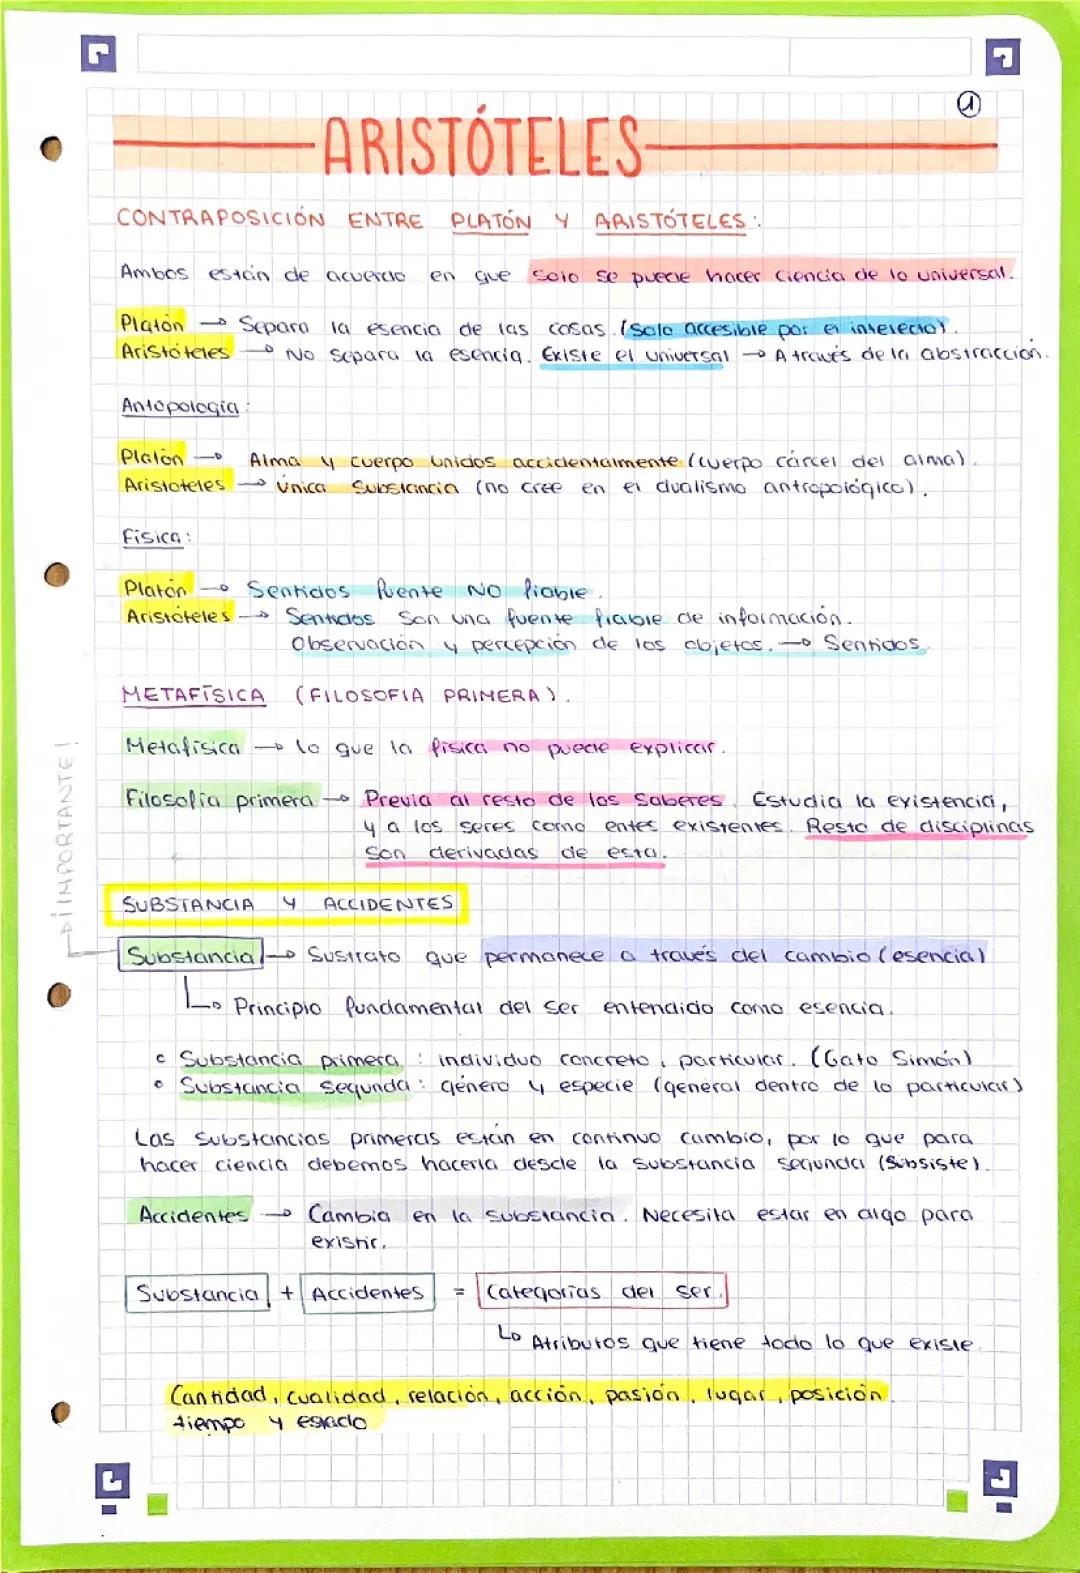 1
ARISTÓTELES
CONTRAPOSICIÓN ENTRE PLATÓN Y ARISTÓTELES:
Ambos están de acuerdo en que solo se puede hacer ciencia de lo universal.
Platón → Separa la esencia de las cosas. (Solo accesible por el intelecto).
Aristóteles → No separa la esencia. Existe el universal → A través de la abstracción.
Antopología:
Platón → Alma y cuerpo unidos accidentalmente (cuerpo cárcel del alma).
Aristoteles → única Substancia (no cree en el dualismo antropológico).
Física:
Platón → Sentidos fuente NO fiable.
Aristóteles → Sentidos son una fuente fiable de información.
Observación y percepción de los objetos. → Sentidos.
METAFÍSICA (FILOSOFIA PRIMERA).
Metafísica → lo que la física no puede explicar.
Filosofía primera → Previa al resto de los saberes. Estudia la existencia,
y a los seres como entes existentes. Resto de disciplinas
son derivadas de esta.
¡IMPORTANTE!
SUBSTANCIA Y ACCIDENTES
Substancia → Sustrato que permanece a través del cambio (esencia)
↳ Principio fundamental del ser entendido como esencia.
• Substancia primera : individuo concreto, particular. (Gato Simón)
• Substancia segunda : género y especie (general dentro de lo particular)
Las substancias primeras están en continuo cambio, por lo que para
hacer ciencia debemos hacerla desde la substancia segunda (Subsiste).
Accidentes → Cambia en la substancia. Necesita estar en algo para
existir.
Substancia + Accidentes = Categorías del ser.
↳ Atributos que tiene todo lo que existe.
Cantidad, cualidad, relación, acción, pasión, lugar, posición
tiempo y estado